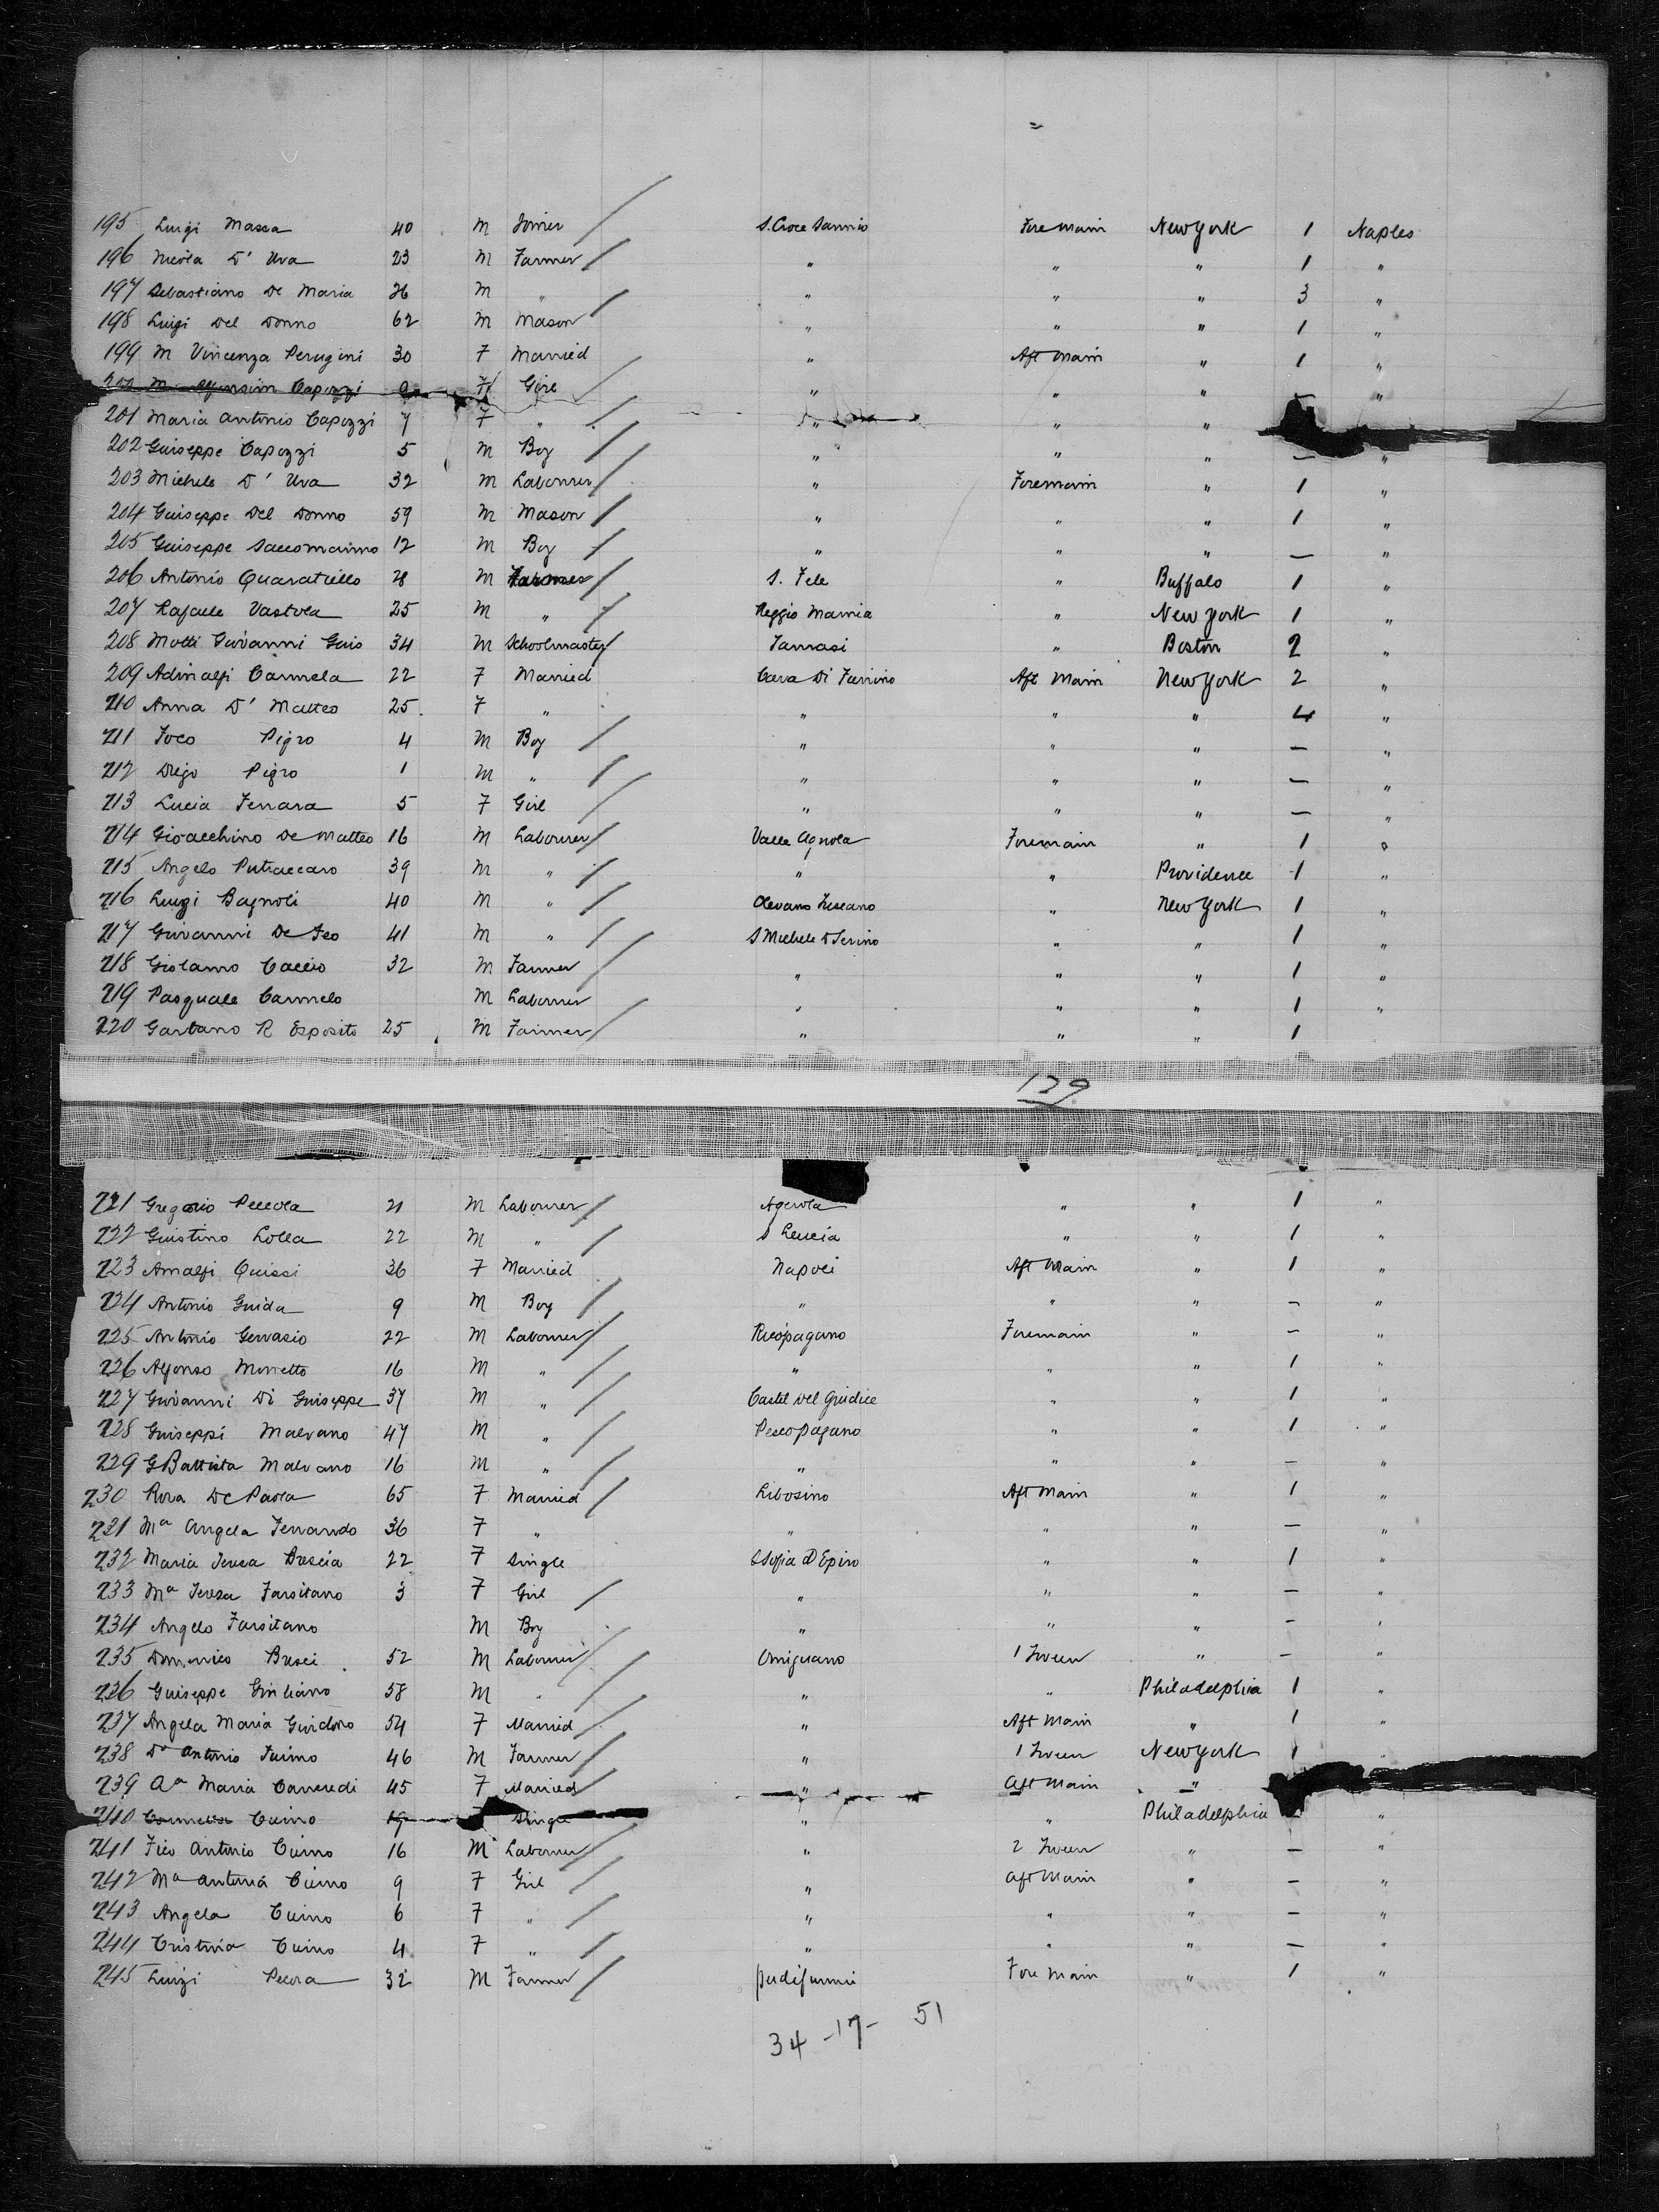 195 Luigi Massa 40 M Joiner S. Croce Sannio Fore main New York 1 Naples
196 Nicola D' Uva 23 M Farmer " " " 1 "
197 Sebastiano De Maria 26 M " " " " 3 "
198 Luigi Del Donno 62 M Mason " " " 1 "
199 M Vincenza Perugini 30 F Married " Aft Main " 1 "
200 M Capozzi F Girl " " " "
201 Maria Antonio Capozzi 7 F " " " "
202 Guiseppe Capozzi 5 M Boy " " " — "
203 Michele D' Uva 32 M Labourer " Foremain " 1 "
204 Guiseppe Del Donno 59 M Mason " " " 1 "
205 Guiseppe Saccomanno 12 M Boy " " " — "
206 Antonio Quaratiello 28 M Farmer S. Fele " Buffalo 1 "
207 Rafaele Vastola 25 M " Reggio " New York 1 "
208 Motti Giovanni Guis 34 M Schoolmaster Taurasi " Boston 2 "
209 Adinalfi Carmela 22 F Married Cava Di Aft Main New York 2 "
210 Anna D' Matteo 25 F " " " " 4 "
211 Pigro 4 M Boy " " " — "
212 Diego Pigro 1 M " " " " — "
213 Lucia Ferrara 5 F Girl " " " — "
214 Gioacchino De Matteo 16 M Labourer Valle Foremain " 1 "
215 Angelo Putraccaro 39 M " " " Providence 1 "
216 Luigi Bagnoli 40 M " Olevano " New York 1 "
217 Giovanni De Feo 41 M " S Michele D Serino " " 1 "
218 Giolamo Caccio 32 M Farmer " " " 1 "
219 Pasquale Carmelo M Labourer " " " 1 "
220 Gartano R Esposito 25 M Farmer " " " 1
139
221 Gregorio 21 M Labourer Agerola " " 1 "
222 Giustino Lolla 22 M " S Lucia " " 1 "
223 Amalfi Quissi 36 F Married Napoli Aft Main " 1 "
224 Antonio Guida 9 M Boy " " " — "
225 Antonio Gervasio 22 M Labourer Foremain " — "
226 Alfonso 16 M " " " " 1 "
227 Giovanni Di Guiseppe 37 M " Castel Del Giudice " " 1 "
228 Guiseppi Malvano 47 M " Pescopagano " " 1 "
229 G Battista Malvano 16 M " " " " — "
230 Rosa De Paola 65 F Married Aft Main " 1 "
231 Ma Angela Ferrando 36 F " " " " — "
232 Maria Teresa Brescia 22 F Single S Sofia D Epiro " " 1 "
233 Ma Teresa Farsitano 3 F Girl " " " — "
234 Angelo Farsitano M Boy " " " — "
235 Domenico 52 M Labourer Omignano 1 Tween " — "
236 Guiseppe Giuliano 58 M " " " Philadelphia 1 "
237 Angela Maria 54 F Married " Aft Main " 1 "
238 Da Antonio 46 M Farmer " 1 Tween New York 1 "
239 Aa Maria 45 F Married " Aft Main "
240 Cuino 19 F Single " " Philadelphia — "
241 Antonio Cuino 16 M Labourer " 2 Tween " — "
242 Ma Antonia Cuino 9 F Girl " Aft Main " — "
243 Angela Cuino 6 F " " " " — "
244 Cristina Cuino 4 F " " " " — "
245 Luigi Pecora 32 M Farmer Fore Main " 1 "
34 - 17 - 51